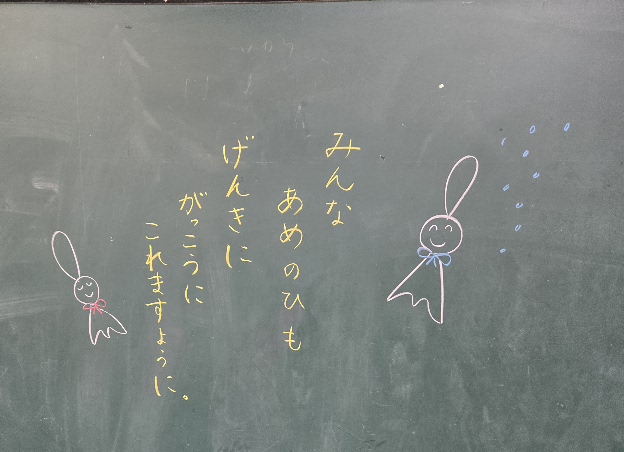 みんな
あめのひも
げんきに
がっこうに
これますように。